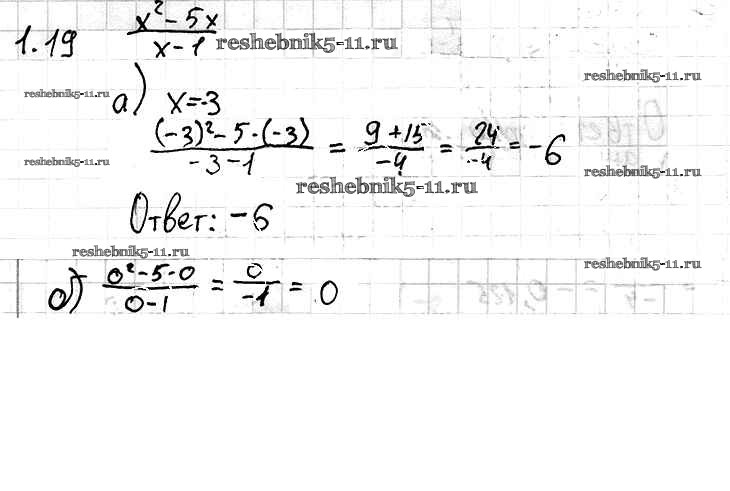 1.19 x² - 5x / x - 1 reshebnik5-11.ru
reshebnik5-11.ru
reshebnik5-11.ru
а) x = -3
(-3)² - 5·(-3) / -3 - 1 = 9 + 15 / -4 = 24 / -4 = -6
reshebnik5-11.ru
reshebnik5-11.ru
reshebnik5-11.ru
Ответ: -6
reshebnik5-11.ru
reshebnik5-11.ru
б) 0² - 5·0 / 0 - 1 = 0 / -1 = 0